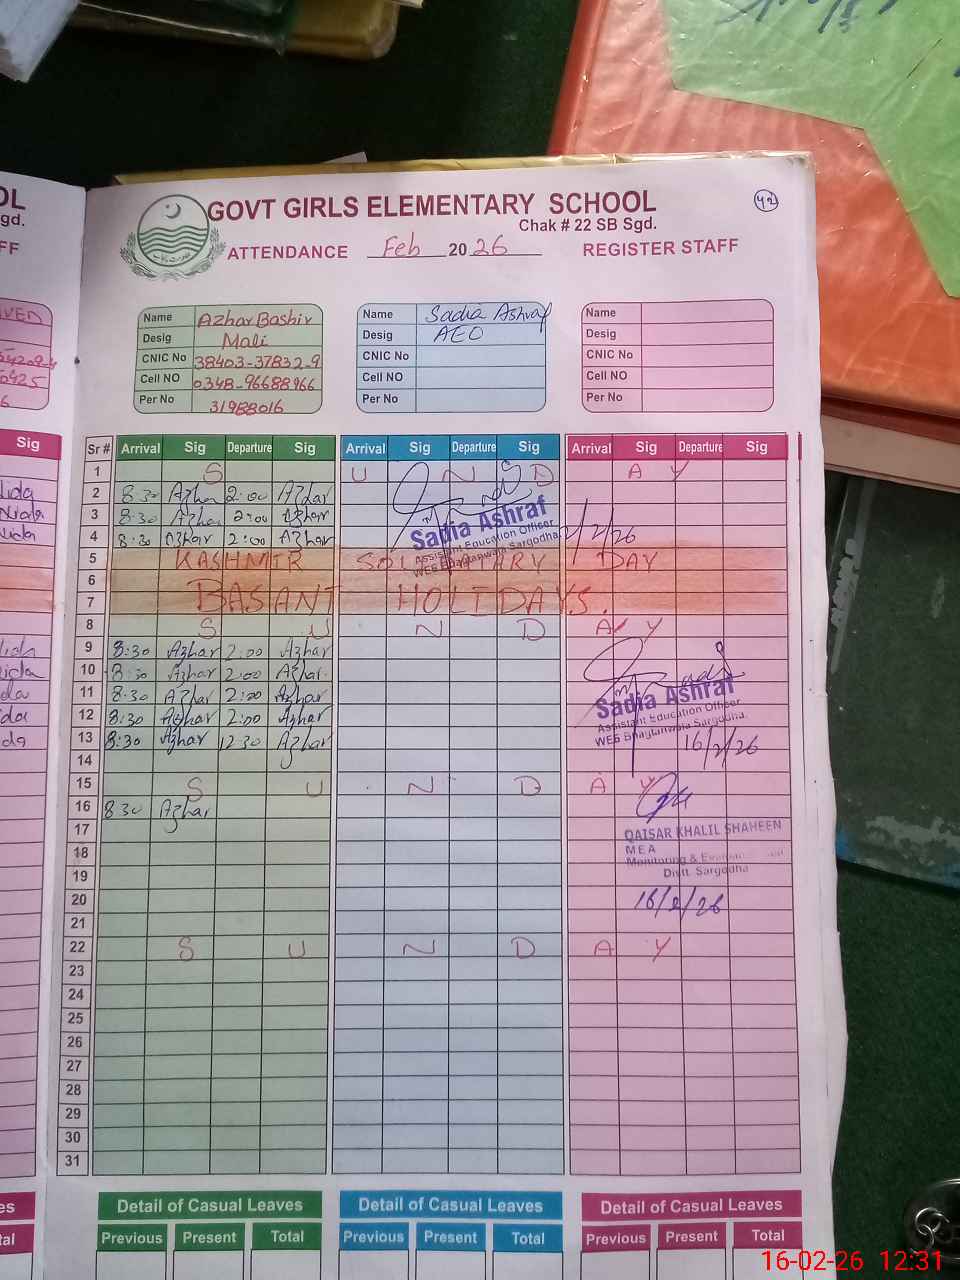 GOVT GIRLS ELEMENTARY SCHOOL
42
Chak # 22 SB Sgd.
ATTENDANCE Feb 2026 REGISTER STAFF
Name Azhar Bashir
Desig Mali
CNIC No 38403-37832-9
Cell NO 0348-96688966
Per No 31988016
Name Sadia Ashraf
Desig AEO
CNIC No
Cell NO
Per No
Name
Desig
CNIC No
Cell NO
Per No
Sig
Sr # Arrival Sig Departure Sig Arrival Sig Departure Sig Arrival Sig Departure Sig
1 S U N D A Y
2 8:30 Azhar 2:00 Azhar
3 8:30 Azhar 2:00 Azhar
4 8:30 Azhar 2:00 Azhar
Sadia Ashraf
Assistant Education Officer
WEE Bhagtanwala Sargodha
2/2/26
5 KASHMIR SOLIDARTARY DAY
6
7 BASANT HOLIDAYS.
8 S U N D A Y
9 8:30 Azhar 2:00 Azhar
10 8:30 Azhar 2:00 Azhar
11 8:30 Azhar 2:00 Azhar
12 8:30 Azhar 2:00 Azhar
13 8:30 Azhar 12:30 Azhar
Sadia Ashraf
Assistant Education Officer
WEE Bhagtanwala Sargodha
16/2/26
14
15 S U N D A Y
16 8:30 Azhar
17
QAISAR KHALIL SHAHEEN
MEA
Monitoring &
Distt. Sargodha
16/2/26
18
19
20
21
22 S U N D A Y
23
24
25
26
27
28
29
30
31
Detail of Casual Leaves Detail of Casual Leaves Detail of Casual Leaves
Previous Present Total Previous Present Total Previous Present Total
16-02-26 12:31